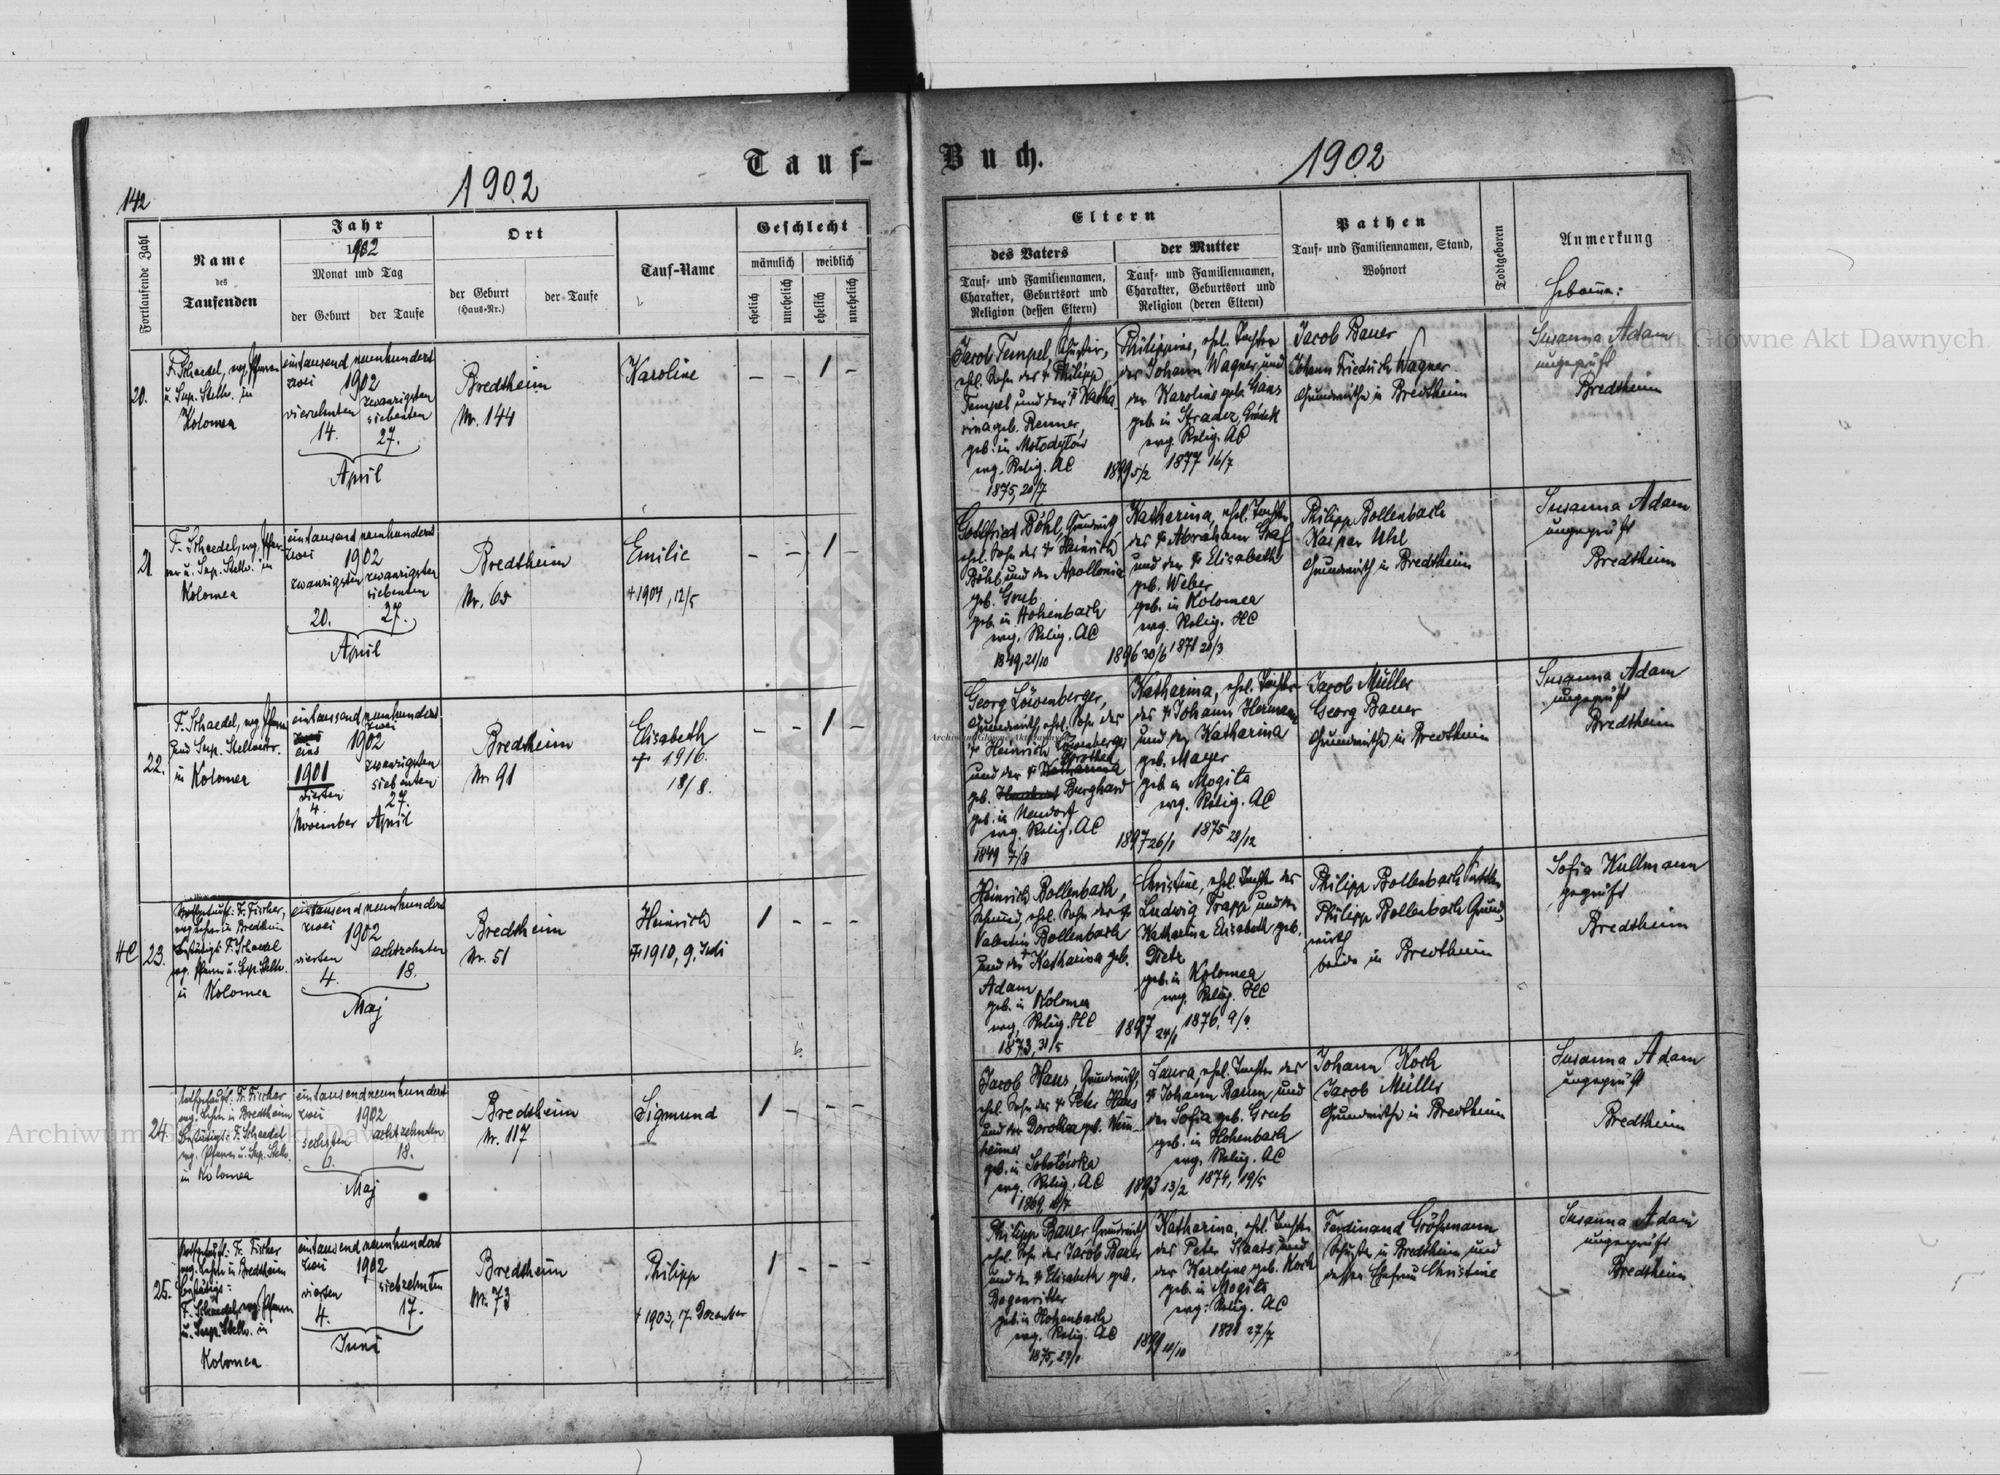 Tauf-
Buch.
142
1902
1902
Fortlaufende Zahl
Name
des
Taufenden
Jahr
1902
Monat und Tag
der Geburt
der Taufe
Ort
der Geburt
(Haus-Nr.)
der Taufe
Tauf-Name
Geschlecht
männlich
weiblich
ehelich
unehelich
ehelich
unehelich
Eltern
des Vaters
Tauf- und Familiennamen,
Charakter, Geburtsort und
Religion (dessen Eltern)
der Mutter
Tauf- und Familiennamen,
Charakter, Geburtsort und
Religion (deren Eltern)
Pathen
Tauf- und Familiennamen, Stand,
Wohnort
Todtgeboren
Anmerkung
Hebamme:
20.
F. Schaedel, evg. Pfarrer
u. Sup. Stellv. in
Kolomea
eintausend neunhundert
zwei 1902
vierzehnten
14.
zwanzigsten
siebenten
27.
April
Bredtheim
Nr. 144
Karoline
— — 1 —
Jacob Tempel, Schuster,
ehel. Sohn des † Philipp
Tempel und der † Katha
rina geb. Renner,
geb. in Mołodyłow
evg. Relig. AC
1875, 20/7
Philippine, ehel. Tochter
des Johann Wagner und
der Karoline geb. Gans
geb. in
evg. Relig. AC
1899 5/2
1877 16/7
Jacob Bauer
Johann Friedrich Wagner
Grundwirthe in Bredtheim
Susanna Adam
ungeprüft
Bredtheim
21.
F. Schaedel, evg. Pfar-
rer u. Sup. Stellv. in
Kolomea
eintausend neunhundert
zwei 1902
zwanzigsten
20.
zwanzigsten
siebenten
27.
April
Bredtheim
Nr. 65
Emilie
† 1904, 12/5
— — 1 —
Gottfried Böhl, Grundwirth
ehel. Sohn des † Heinrich
Böhl und der Apollonia
geb. Grub
geb. in Hohenbach
evg. Relig. AC
1849, 21/10
Katharina, ehel. Tochter
des † Abraham Graf
und der † Elisabeth
geb. Weber
geb. in Kolomea
evg. Relig. HC
1896 30/6
1871 20/3
Philipp Bollenbach
Kaspar Uhl
Grundwirth in Bredtheim
Susanna Adam
ungeprüft
Bredtheim
22.
F. Schaedel, evg. Pfarrer
und Sup. Stellvertr.
in Kolomea
eintausend neunhundert
eins
1901
vierten
4
November
zwei
1902
zwanzigsten
siebenten
27.
April
Bredtheim
Nr. 91
Elisabeth
† 1916.
18/8.
— — 1 —
Georg Löwenberger,
Grundwirth, ehel. Sohn des
† Heinrich Löwenberger
und der † Katharina
Dorothea
geb. Burghard
geb. in Neudorf
evg. Relig. AC
1849 7/8
Katharina, ehel. Tochter
des † Johann Hermann
und der Katharina
geb. Mayer
geb. in Mogiła
evg. Relig. AC
1897 26/1
1875 28/12
Jacob Müller
Georg Bauer
Grundwirthe in Bredtheim
Susanna Adam
ungeprüft
Bredtheim
HC
23.
Nothgetauft: Fr. Fischer,
evg. Lehrer in Bredtheim
Bestätigt: F. Schaedel
evg. Pfarrer u. Sup. Stellv.
in Kolomea
eintausend neunhundert
zwei 1902
vierten
4.
achtzehnten
18.
Maj
Bredtheim
Nr. 51
Heinrich
† 1910, 9. Juli
1 - - -
Heinrich Bollenbach,
Schmied, ehel. Sohn des †
Valentin Bollenbach
und der † Katharina geb.
Adam
geb. in Kolomea
evg. Relig. HC
1873, 31/5
Christine, ehel. Tochter des
Ludwig Trapp und der
Katharina Elisabeth geb.
Dietz
geb. in Kolomea
evg. Relig. HC
1897 24/1
1876, 9/4
Philipp Bollenbach Sattler
Philipp Bollenbach Grund
wirth
beide in Bredtheim
Sofia Kullmann
geprüft
Bredtheim
24.
Nothgetauft: Fr. Fischer
evg. Lehrer in Bredtheim
Bestätigt: F. Schaedel
evg. Pfarrer u. Sup. Stellv.
in Kolomea
eintausend neunhundert
zwei 1902
sechsten
6.
achtzehnten
18.
Maj
Bredtheim
Nr. 117
Sigmund
1 - - -
Jacob Haus, Grundwirth,
ehel. Sohn des † Peter Haus
und der Dorothea geb. Wein-
heimer
geb. in Sobotówka
evg. Relig. AC
Laura, ehel. Tochter des
† Johann Bauer, und
der Sofia geb. Grub
geb. in Hohenbach
evg. Relig. AC
1893 13/2
1874, 19/5
Johann Koch
Jacob Müller
Grundwirthe in Bredtheim
Susanna Adam
ungeprüft
Bredtheim
25.
Nothgetauft: Fr. Fischer
evg. Lehrer in Bredtheim
Bestätigt:
F. Schaedel, evg. Pfarrer
u. Sup. Stellv. in
Kolomea
eintausend neunhundert
zwei 1902
vierten
4.
siebzehnten
17.
Juni
Bredtheim
Nr. 73
Philipp
† 1903, 7. Dezember
1 - - -
Philipp Bauer, Grundwirth
ehel. Sohn des Jacob Bauer
und der † Elisabeth geb.
Bogenritter
geb. in Hohenbach
evg. Relig. AC
Katharina, ehel. Tochter
des Peter Staats und
der Karoline geb. Koch
geb. in Mogiła
evg. Relig. AC
1881 27/7
Ferdinand Größmann
Schuster in Bredtheim und
dessen Ehefrau Christine
Susanna Adam
ungeprüft
Bredtheim